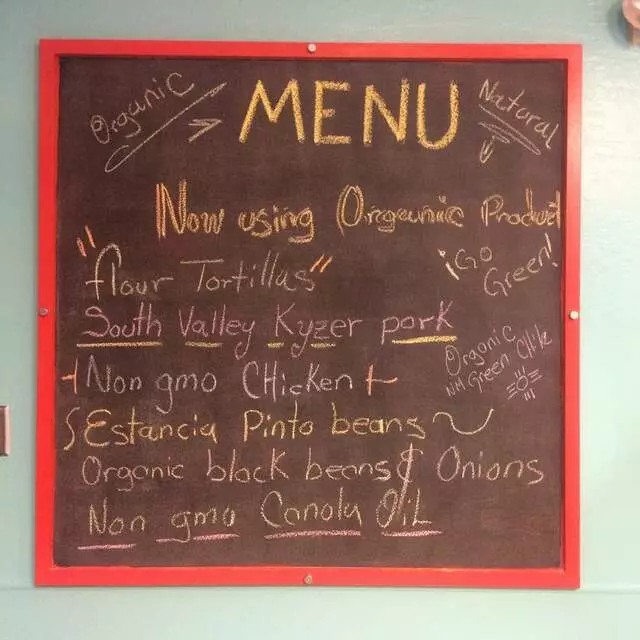 Organic
MENU
Natural
Now using Orgeunic Product
¡Go Green!
"flour Tortillas"
South Valley Kyzer pork
Organic
NM Green Chile
Non gmo CHicken
Estancia Pinto beans
Organic black beans & Onions
Non gmo Canola OiL